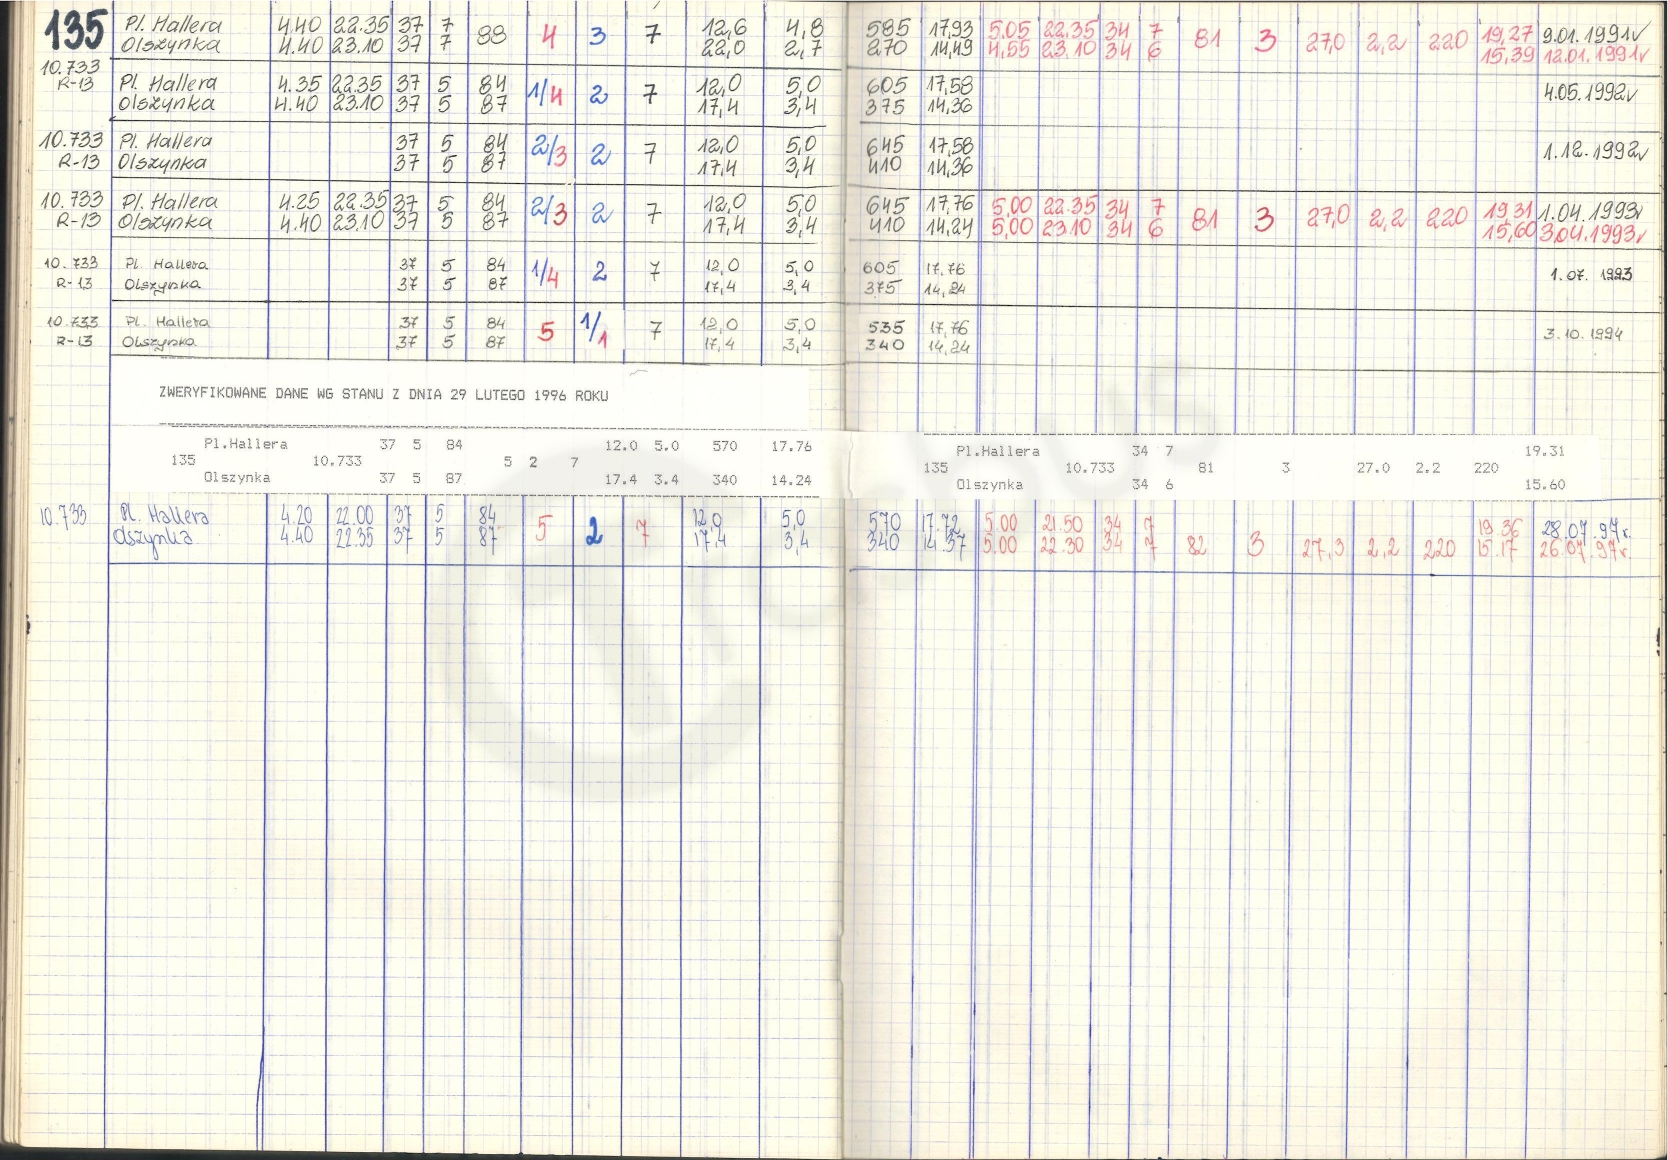 135 Pl. Hallera 4.40 22.35 37 7 88 4 3 7 12,6 4,8 585 17,93 5.05 22.35 34 7 81 3 27,0 2,2 220 19,27 9.01.1991r
Olszynka 4.40 23.10 37 7 22,0 2,7 270 14,49 4.55 23.10 34 6 15,39 12.01.1991r
10.733 Pl. Hallera 4.35 22.35 37 5 84 1/4 2 7 12,0 5,0 605 17,58 4.05.1992r
R-13 Olszynka 4.40 23.10 37 5 87 17,4 3,4 375 14,36
10.733 Pl. Hallera 37 5 84 2/3 2 7 12,0 5,0 645 17,58 1.12.1992r
R-13 Olszynka 37 5 87 17,4 3,4 410 14,36
10.733 Pl. Hallera 4.25 22.35 37 5 84 2/3 2 7 12,0 5,0 645 17,76 5.00 22.35 34 7 81 3 27,0 2,2 220 19.31 1.04.1993r
R-13 Olszynka 4.40 23.10 37 5 87 17,4 3,4 410 14,24 5,00 23.10 34 6 15,60 3.04.1993r
10.733 Pl. Hallera 37 5 84 1/4 2 7 12,0 5,0 605 17,76 1.07.1993
R-13 Olszynka 37 5 87 17,4 3,4 375 14,24
10.733 Pl. Hallera 37 5 84 5 1/1 7 12,0 5,0 535 17,76 3.10.1994
R-13 Olszynka 37 5 87 17,4 3,4 340 14,24
ZWERYFIKOWANE DANE WG STANU Z DNIA 29 LUTEGO 1996 ROKU
Pl.Hallera 37 5 84 12.0 5.0 570 17.76 Pl.Hallera 34 7 19.31
135 10.733 5 2 7 135 10.733 81 3 27.0 2.2 220
Olszynka 37 5 87 17.4 3.4 340 14.24 Olszynka 34 6 15.60
10.733 Pl. Hallera 4.20 22.00 37 5 84 5 2 7 12,0 5,0 570 17.72 5.00 21.50 34 7 82 3 27,3 2,2 220 19.36 28.07.97r.
Olszynka 4.40 22.35 37 5 87 17,4 3,4 340 14.37 5.00 22.30 34 7 15.17 26.07.97r.